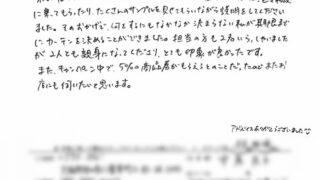 に乗ってもらったり、たくさんのサンプルを見せてもらいながら説明をしてください
ました。そのおかげで、何をするにもなかなか決まらない私が期限まで
にカーテンを決めることができました。担当の方も2名いらっしゃいました
が2人とも親身になってくださり、とても印象が良かったです。
また、キャンペーン中で5%の商品券がもらえるとのことだったのでまたお
店にも伺いたいと思います。
アドバイスありがとうございました